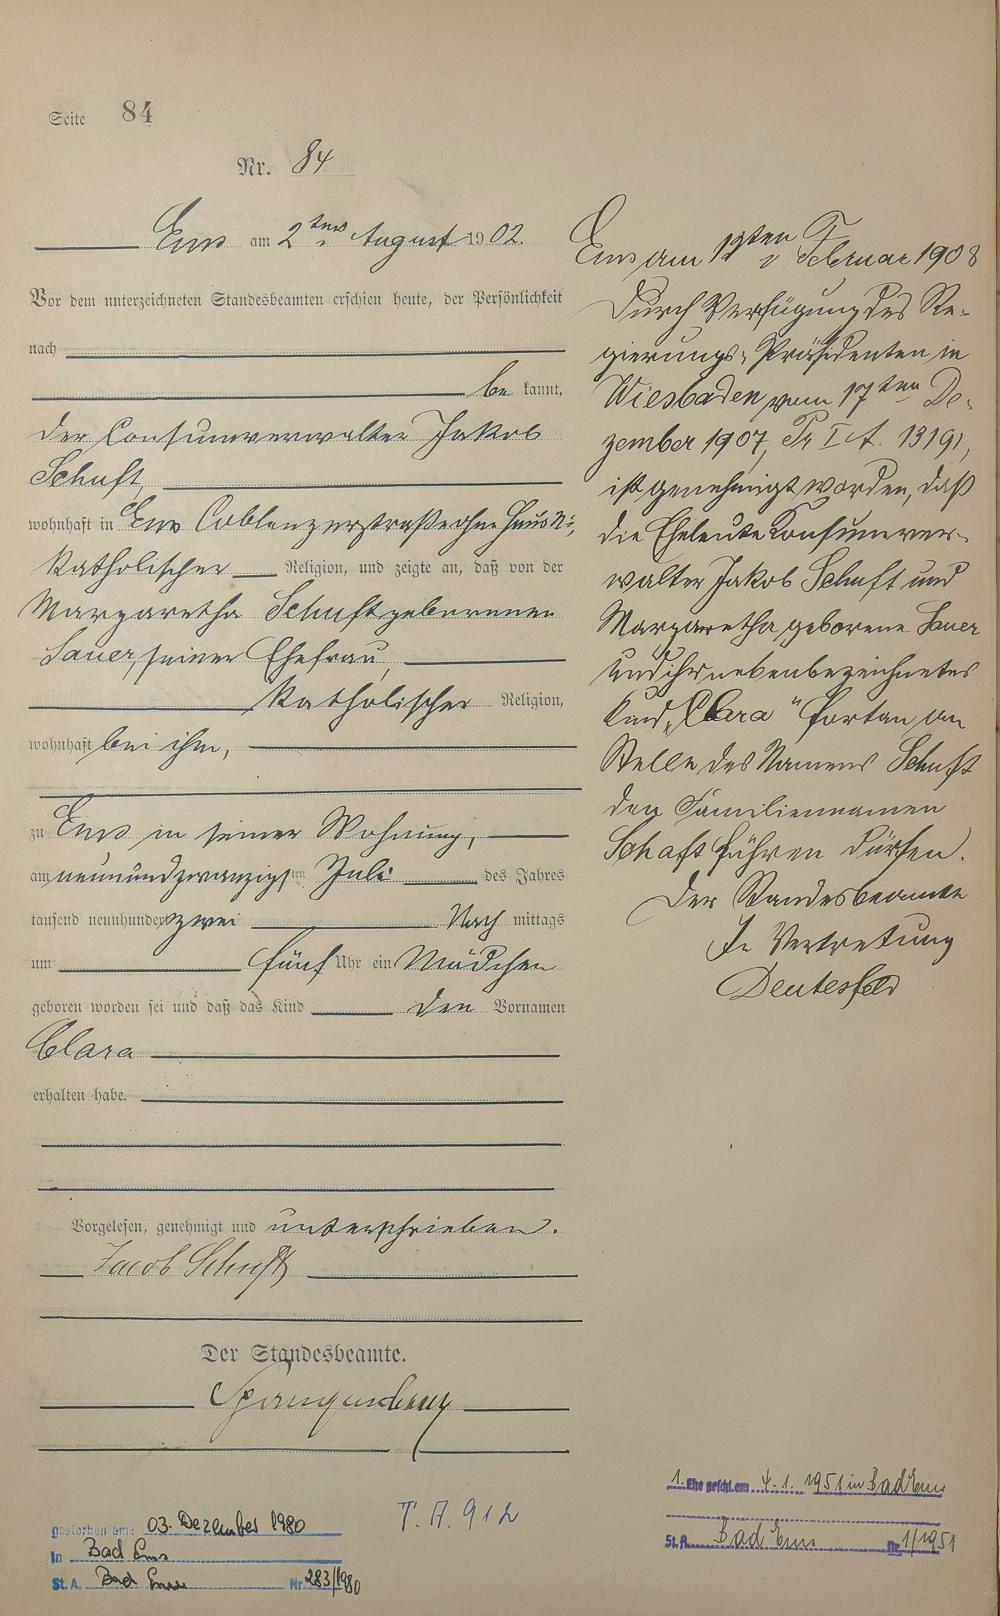 Seite 84
Nr. 84
Ems am 2ten August 1902.
Vor dem unterzeichneten Standesbeamten erschien heute, der Persönlichkeit
nach
bekannt,
der Consumverwalter Jakob
Schuft,
wohnhaft in Ems Coblenzerstraße ohne Haus N:,
katholischer Religion, und zeigte an, daß von der
Margaretha Schuft geborenen
Sauer, seiner Ehefrau,
katholischer Religion,
wohnhaft bei ihm,
zu Ems in seiner Wohnung,
am neunundzwanzigsten Juli des Jahres
tausend neunhundert zwei Nachmittags
um fünf Uhr ein Mädchen
geboren worden sei und daß das Kind den Vornamen
Clara
erhalten habe.
Vorgelesen, genehmigt und unterschrieben.
Jacob Schuft
Der Standesbeamte.
Spangenberg
Ems am 12ten Februar 1908
Durch Verfügung des Re-
gierungs-Präsidenten in
Wiesbaden vom 17ten De-
zember 1907, Pr I A. 13191,
ist genehmigt worden, daß
die Eheleute Konsumver-
walter Jakob Schuft und
Margaretha geborene Sauer
und ihr nebenbezeichnetes
Kind „Clara" fortan an
Stelle des Namens Schuft
den Familiennamen
Schaft führen dürfen.
Der Standesbeamte
In Vertretung
Deutesfeld
gestorben am: 03. Dezember 1980
in Bad Ems
St. A. Bad Ems Nr. 283/1980
T. A. 912
1. Ehe geschl. am 4.1.1951 in Bad Ems
St. A. Bad Ems Nr. 1/1951